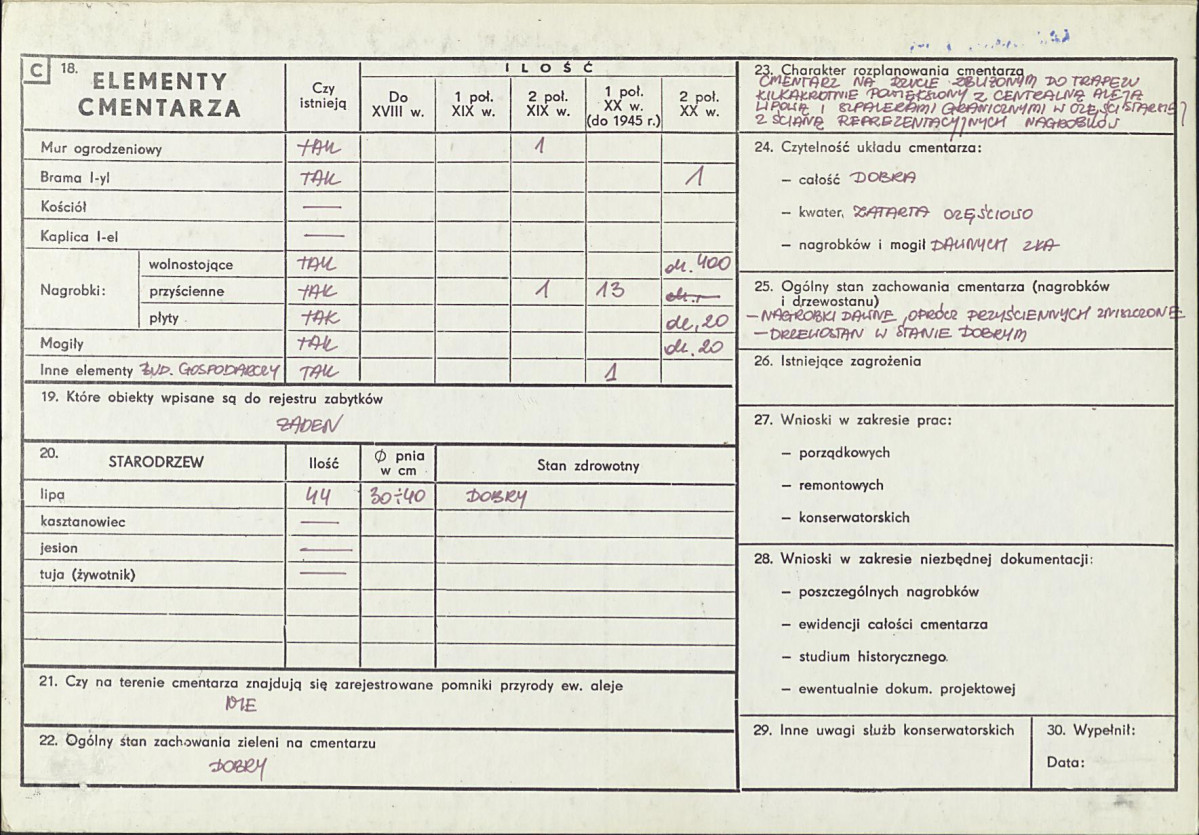 C 18. ELEMENTY CMENTARZA
Czy istnieją
ILOŚĆ
Do XVIII w.
1 poł. XIX w.
2 poł. XIX w.
1 poł. XX w. (do 1945 r.)
2 poł. XX w.
Mur ogrodzeniowy TAK 1
Brama I-yl TAK 1
Kościół —
Kaplica I-el —
Nagrobki:
wolnostojące TAK ok. 400
przyścienne TAK 1 13
płyty TAK ok. 20
Mogiły TAK ok. 20
Inne elementy BUD. GOSPODARCZY TAK 1
19. Które obiekty wpisane są do rejestru zabytków
ŻADEN
20. STARODRZEW Ilość Ø pnia w cm Stan zdrowotny
lipa 44 30÷40 DOBRY
kasztanowiec —
jesion —
tuja (żywotnik) —
21. Czy na terenie cmentarza znajdują się zarejestrowane pomniki przyrody ew. aleje
NIE
22. Ogólny stan zachowania zieleni na cmentarzu
DOBRY
23. Charakter rozplanowania cmentarza
CMENTARZ NA RZUCIE ZBLIŻONYM DO TRAPEZU
KILKAKROTNIE POWIĘKSZONY Z CENTRALNĄ ALEJĄ
LIPOWĄ I SZPALERAMI GRANICZNYMI W CZĘŚCI STARSZEJ
Z ŚCIANĄ REPREZENTACYJNYCH NAGROBKÓW
24. Czytelność układu cmentarza:
– całość DOBRA
– kwater, ZATARTA CZĘŚCIOWO
– nagrobków i mogił DAWNYCH ZŁA
25. Ogólny stan zachowania cmentarza (nagrobków
i drzewostanu)
– NAGROBKI DAWNE, OPRÓCZ PRZYŚCIENNYCH ZNISZCZONE
– DRZEWOSTAN W STANIE DOBRYM
26. Istniejące zagrożenia
27. Wnioski w zakresie prac:
– porządkowych
– remontowych
– konserwatorskich
28. Wnioski w zakresie niezbędnej dokumentacji:
– poszczególnych nagrobków
– ewidencji całości cmentarza
– studium historycznego.
– ewentualnie dokum. projektowej
29. Inne uwagi służb konserwatorskich
30. Wypełnił:
Data: